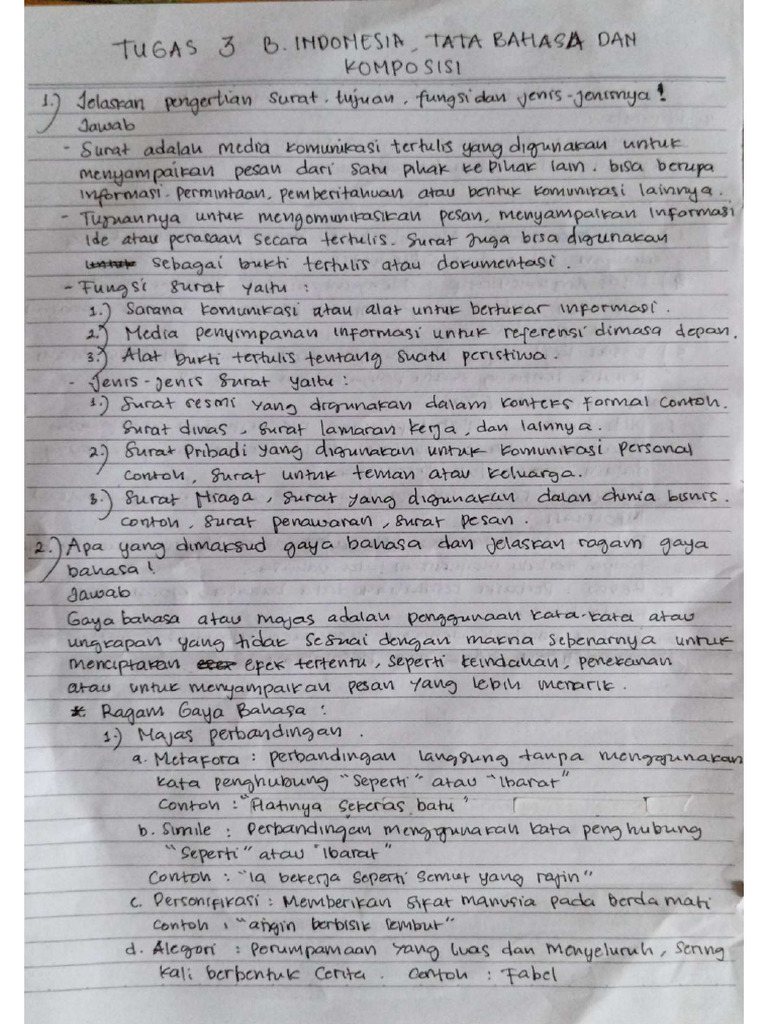 TUGAS 3 B. INDONESIA, TATA BAHASA DAN
KOMPOSISI
1.) Jelaskan pengertian surat. tujuan, fungsi dan jenis-jenisnya!
Jawab
- Surat adalah media komunikasi tertulis yang digunakan untuk
menyampaikan pesan dari satu pihak ke pihak lain. bisa berupa
informasi. permintaan, pemberitahuan atau bentuk komunikasi lainnya.
- Tujuannya untuk mengomunikasikan pesan, menyampaikan informasi
ide atau perasaan secara tertulis. Surat juga bisa digunakan
untuk sebagai bukti tertulis atau dokumentasi.
- Fungsi surat yaitu :
1.) Sarana komunikasi atau alat untuk bertukar informasi.
2.) Media penyimpanan informasi untuk referensi dimasa depan.
3.) Alat bukti tertulis tentang suatu peristiwa.
- Jenis-jenis surat yaitu :
1.) Surat resmi yang digunakan dalam konteks formal contoh.
Surat dinas, surat lamaran kerja, dan lainnya.
2.) Surat Pribadi yang digunakan untuk komunikasi personal
contoh, surat untuk teman atau keluarga.
3.) Surat Niaga, surat yang digunakan dalan dunia bisnis.
contoh, surat penawaran, surat pesan.
2.) Apa yang dimaksud gaya bahasa dan jelaskan ragam gaya
bahasa!
Jawab
Gaya bahasa atau majas adalah penggunaan kata-kata atau
ungkapan yang tidak sesuai dengan makna sebenarnya untuk
menciptakan epek tertentu, seperti keindahan, penekanan
atau untuk menyampaikan pesan yang lebih menarik.
* Ragam Gaya Bahasa :
1.) Majas perbandingan.
a. Metafora : perbandingan langsung tanpa menggunakan
kata penghubung "seperti" atau "Ibarat"
Contoh : "Hatinya sekeras batu"
b. Simile : Perbandingan menggunakan kata penghubung
"Seperti" atau "Ibarat"
Contoh : "Ia bekerja seperti semut yang rajin"
c. Personifikasi : Memberikan sifat manusia pada berda mati
contoh : "angin berbisik lembut"
d. Alegori : perumpamaan yang luas dan menyeluruh, sering
kali berbentuk cerita. Contoh : Fabel